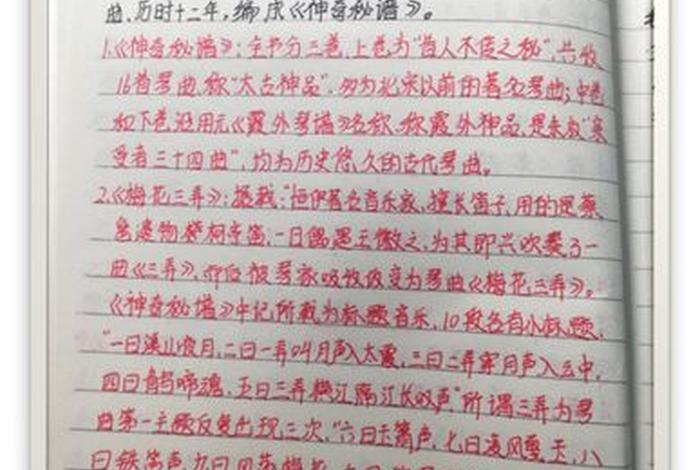 曲、历时十二年,编成《神奇秘谱》。
1.《神奇秘谱》:全书分三卷,上卷为"昔人不传之秘",共收
16首琴曲,称"太古神品",多为北宋以前的著名琴曲;中卷
和下卷沿用元《霞外琴谱》名称,称霞外神品,是朱权"亲
受者三十四曲",均为历史悠久的古代琴曲。
2.《梅花三弄》:据载:"桓伊著名音乐家,擅长笛子,用的是蔡
邕遗物柯亭笛,一日偶遇王徽之,为其即兴吹奏了一
曲《三弄》,即后被琴家吸收改变为琴曲《梅花三弄》。
《神奇秘谱》中记所载为标题音乐,10段各有小标题:
"一曰溪山夜月,二曰一弄叫月声入太霞,三曰二弄穿月声入云中,
四曰青鸟啼魂,五曰三弄横江隔江长叹声"所谓三弄为琴
曲第一主题反复出现三次,"六曰玉箫声,七曰凌风戛玉,八
曰铁笛声,九曰风荡梅花